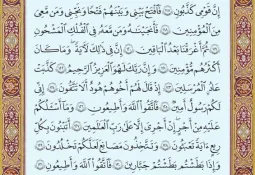 إِنَّ قَوْمِى كَذَّبُونِ ۝ فَٱفْتَحْ بَيْنِى وَبَيْنَهُمْ فَتْحًا وَنَجِّنِى وَمَن مَّعِىَ
مِنَ ٱلْمُؤْمِنِينَ ۝ فَأَنجَيْنَٰهُ وَمَن مَّعَهُۥ فِى ٱلْفُلْكِ ٱلْمَشْحُونِ
۝ ثُمَّ أَغْرَقْنَا بَعْدُ ٱلْبَاقِينَ ۝ إِنَّ فِى ذَٰلِكَ لَءَايَةً وَمَا كَانَ
أَكْثَرُهُم مُّؤْمِنِينَ ۝ وَإِنَّ رَبَّكَ لَهُوَ ٱلْعَزِيزُ ٱلرَّحِيمُ ۝ كَذَّبَتْ
عَادٌ ٱلْمُرْسَلِينَ ۝ إِذْ قَالَ لَهُمْ أَخُوهُمْ هُودٌ أَلَا تَتَّقُونَ ۝ إِنِّى
لَكُمْ رَسُولٌ أَمِينٌ ۝ فَٱتَّقُوا۟ ٱللَّهَ وَأَطِيعُونِ ۝ وَمَآ أَسْـَٔلُكُمْ
عَلَيْهِ مِنْ أَجْرٍ إِنْ أَجْرِىَ إِلَّا عَلَىٰ رَبِّ ٱلْعَٰلَمِينَ ۝ أَتَبْنُونَ بِكُلِّ
رِيعٍ ءَايَةً تَعْبَثُونَ ۝ وَتَتَّخِذُونَ مَصَانِعَ لَعَلَّكُمْ تَخْلُدُونَ ۝
وَإِذَا بَطَشْتُم بَطَشْتُمْ جَبَّارِينَ ۝ فَٱتَّقُوا۟ ٱللَّهَ وَأَطِيعُونِ ۝